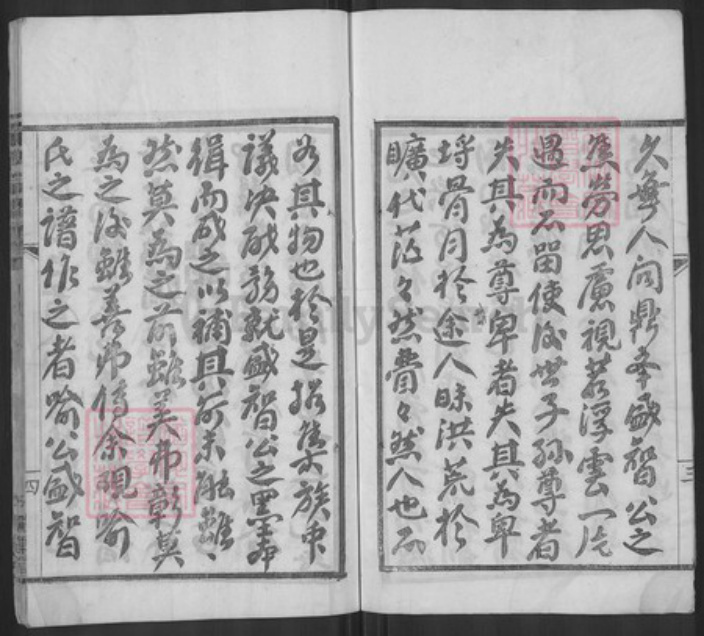 久無人向鼎幸盛智公之
焦勞思慮視若浮雲一片
過而不留使後世子孫尊者
失其為尊卑者失其為卑
將骨月於途人昧洪荒於
曠代茫々然費々然人也而
為其物也於是招集族中
議决成務就盛智公之墨帝
緝而成之以補其前未能雖
然莫為之前雖美弗彰莫
為之後雖善弗傳余視喻
氏之譜作之者喻公盛智
三
四